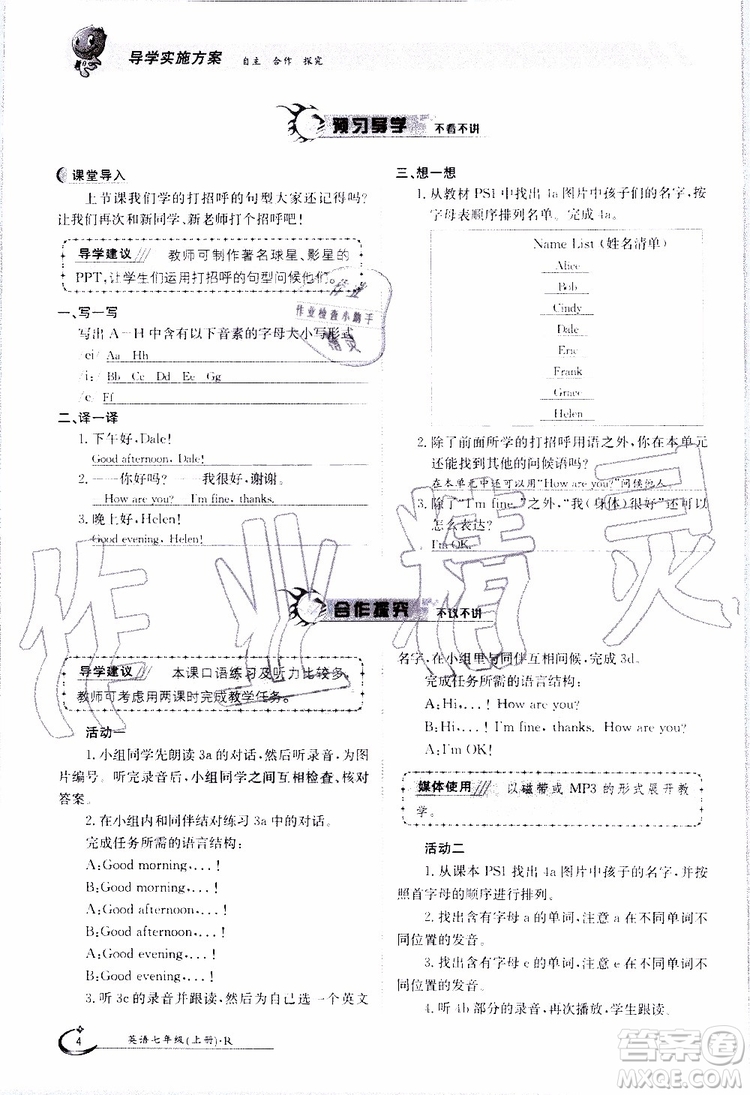 导学实施方案 自主 合作 探究
预习导学 不看不讲
课堂导入
上节课我们学的打招呼的句型大家还记得吗?
让我们再次和新同学、新老师打个招呼吧!
导学建议 教师可制作著名球星、影星的
PPT,让学生们运用打招呼的句型问候他们。
一、写一写
写出 A－H 中含有以下音素的字母大小写形式
/ei/ Aa Hh
/i:/ Bb Cc Dd Ee Gg
二、译一译
1. 下午好,Dale!
Good afternoon, Dale!
2. ——你好吗? ——我很好,谢谢。
How are you? I'm fine, thanks.
3. 晚上好,Helen!
Good evening, Helen!
三、想一想
1. 从教材 PS1 中找出 4a 图片中孩子们的名字,按
字母表顺序排列名单。完成 4a。
Name List (姓名清单)
Alice
Bob
Cindy
Dale
Eric
Frank
Grace
Helen
2. 除了前面所学的打招呼用语之外,你在本单元
还能找到其他的问候语吗?
在本单元中还可以用"How are you?"来问候他人。
3. 除了"I'm fine."之外,"我(身体)很好"还可以
怎么表达?
I'm OK.
合作探究 不议不讲
导学建议 本课口语练习及听力比较多,
教师可考虑用两课时完成教学任务。
活动一
1. 小组同学先朗读 3a 的对话,然后听录音,为图
片编号。听完录音后,小组同学之间互相检查、核对
答案。
2. 在小组内和同伴结对练习 3a 中的对话。
完成任务所需的语言结构:
A:Good morning,...!
B:Good morning,...!
A:Good afternoon,...!
B:Good afternoon,...!
A:Good evening,...!
B:Good evening,...!
3. 听 3c 的录音并跟读,然后给自己起一个英文
名字,在小组里与同伴互相问候,完成 3d。
完成任务所需的语言结构:
A:Hi,...! How are you?
B:Hi,...! I'm fine, thanks. How are you?
A:I'm OK!
媒体使用 以磁带或 MP3 的形式展开教
学。
活动二
1. 从课本 PS1 找出 4a 图片中孩子的名字,并按
照首字母的顺序进行排列。
2. 找出含有字母 a 的单词,注意 a 在不同单词不
同位置的发音。
3. 找出含有字母 e 的单词,注意 e 在不同单词不
同位置的发音。
4. 听 4b 部分的录音,再次播放,学生跟读。
4 英语七年级(上册)·R
作业
作业检查小助手
精灵
作业精灵
答案圈
MXQE.COM